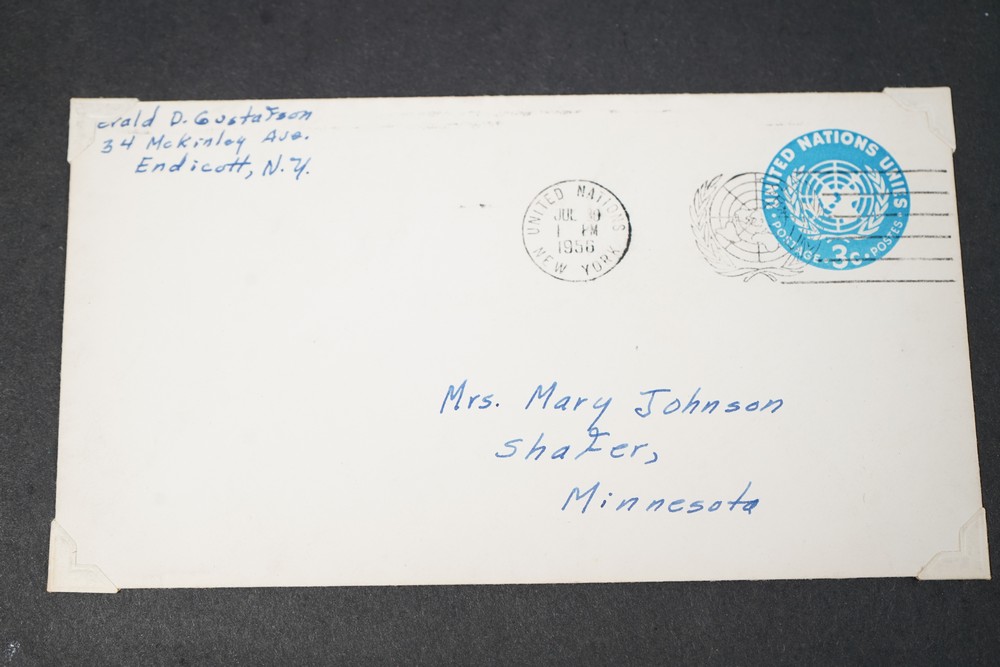 erald D. Gustafson
34 McKinley Ave.
Endicott, N.Y.
UNITED NATIONS
JUL 30
1 PM
1956
NEW YORK
UNITED NATIONS UNIES
POSTAGE 3c POSTES
Mrs. Mary Johnson
Shafer,
Minnesota